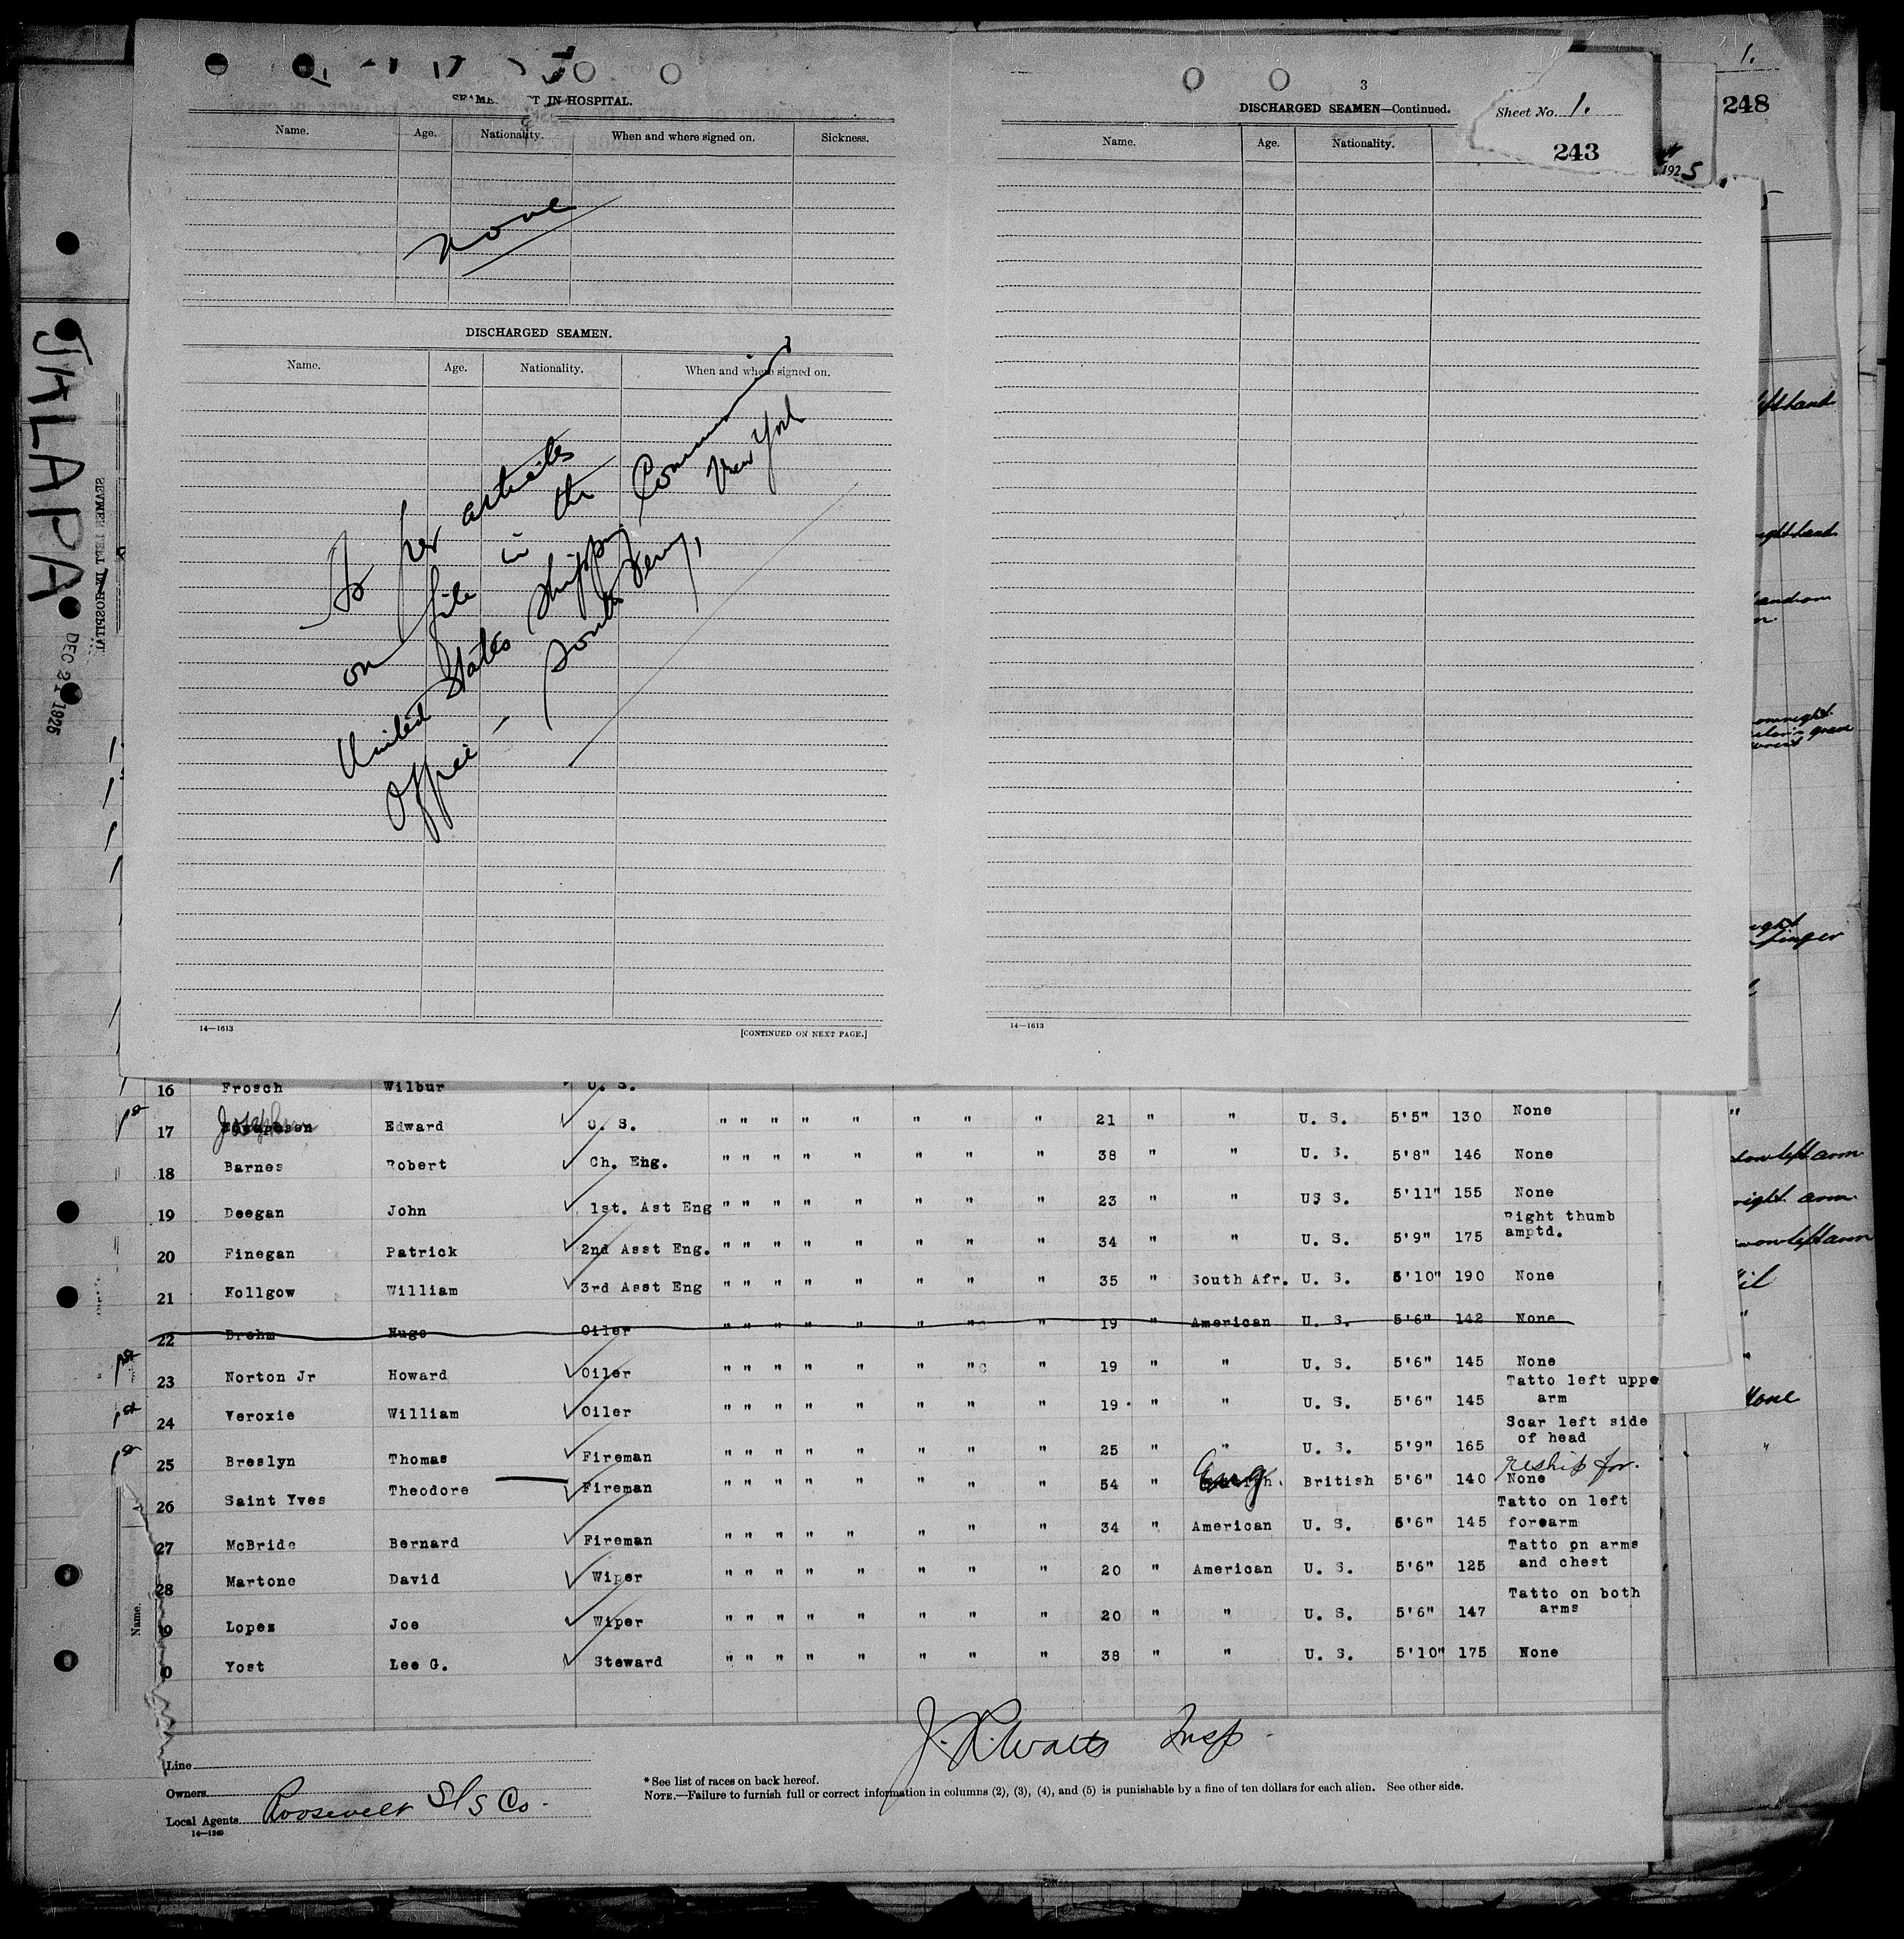 SEAME T IN HOSPITAL.
Name. Age. Nationality. When and where signed on. Sickness.
None
DISCHARGED SEAMEN.
Name. Age. Nationality. When and where signed on.
As per articles
on file in the
United States Shipping Commissioner
Office — South Ferry,
New York
14—1613
[CONTINUED ON NEXT PAGE.]
3
DISCHARGED SEAMEN—Continued.
Name. Age. Nationality.
14—1613
Sheet No. 1.
243
1925
1.
248
JALAPA
DEC 21 1925
SEAMEN LEFT IN HOSPITAL
left hand
right hand
finger
left arm
right arm.
left arm
None
16 Frosch Wilbur O. S.
17 Edward O. S. " " " " " " " " 21 " " U. S. 5'5" 130 None
18 Barnes Robert Ch. Eng. " " " " " " " " 38 " " U. S. 5'8" 146 None
19 Deegan John 1st. Ast Eng " " " " " " " " 23 " " US S. 5'11" 155 None
20 Finegan Patrick 2nd Asst Eng. " " " " " " " " 34 " " U. S. 5'9" 175 Right thumb
amptd.
21 Kollgow William 3rd Asst Eng " " " " " " " " 35 " South Afr. U. S. 5'10" 190 None
22 Drohm Hugo Oiler " " " " " " " " 19 " American U. S. 5'6" 142 None
23 Norton Jr Howard Oiler " " " " " " " " 19 " " U. S. 5'6" 145 None
24 Veroxie William Oiler " " " " " " " " 19 " " U. S. 5'6" 145 Tatto left uppe
arm
25 Breslyn Thomas Fireman " " " " " " " " 25 " " U. S. 5'9" 165 Scar left side
of head
26 Saint Yves Theodore Fireman " " " " " " " 54 " Eng British 5'6" 140 None
reship for.
27 McBride Bernard Fireman " " " " " " " " 34 " American U. S. 5'6" 145 Tatto on left
forearm
28 Martone David Wiper " " " " " " " " 20 " American U. S. 5'6" 125 Tatto on arms
and chest
9 Lopez Joe Wiper " " " " " " " " 20 " " U. S. 5'6" 147 Tatto on both
arms
0 Yost Lee G. Steward " " " " " " " " 38 " " U. S. 5'10" 175 None
Name.
J. R. Watts Insp.
Line
Owners
Local Agents Roosevelt S/S Co.
14—1240
* See list of races on back hereof.
NOTE.—Failure to furnish full or correct information in columns (2), (3), (4), and (5) is punishable by a fine of ten dollars for each alien. See other side.